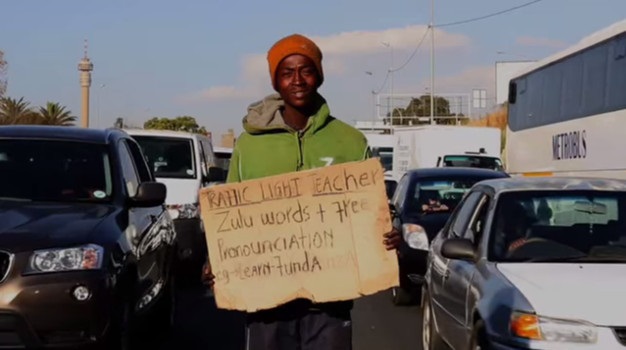 TRAFFIC LIGHT TEACHER
Zulu words + Free
PRONOUNCIATION
eg-LEARN-FUNDA
METROBUS